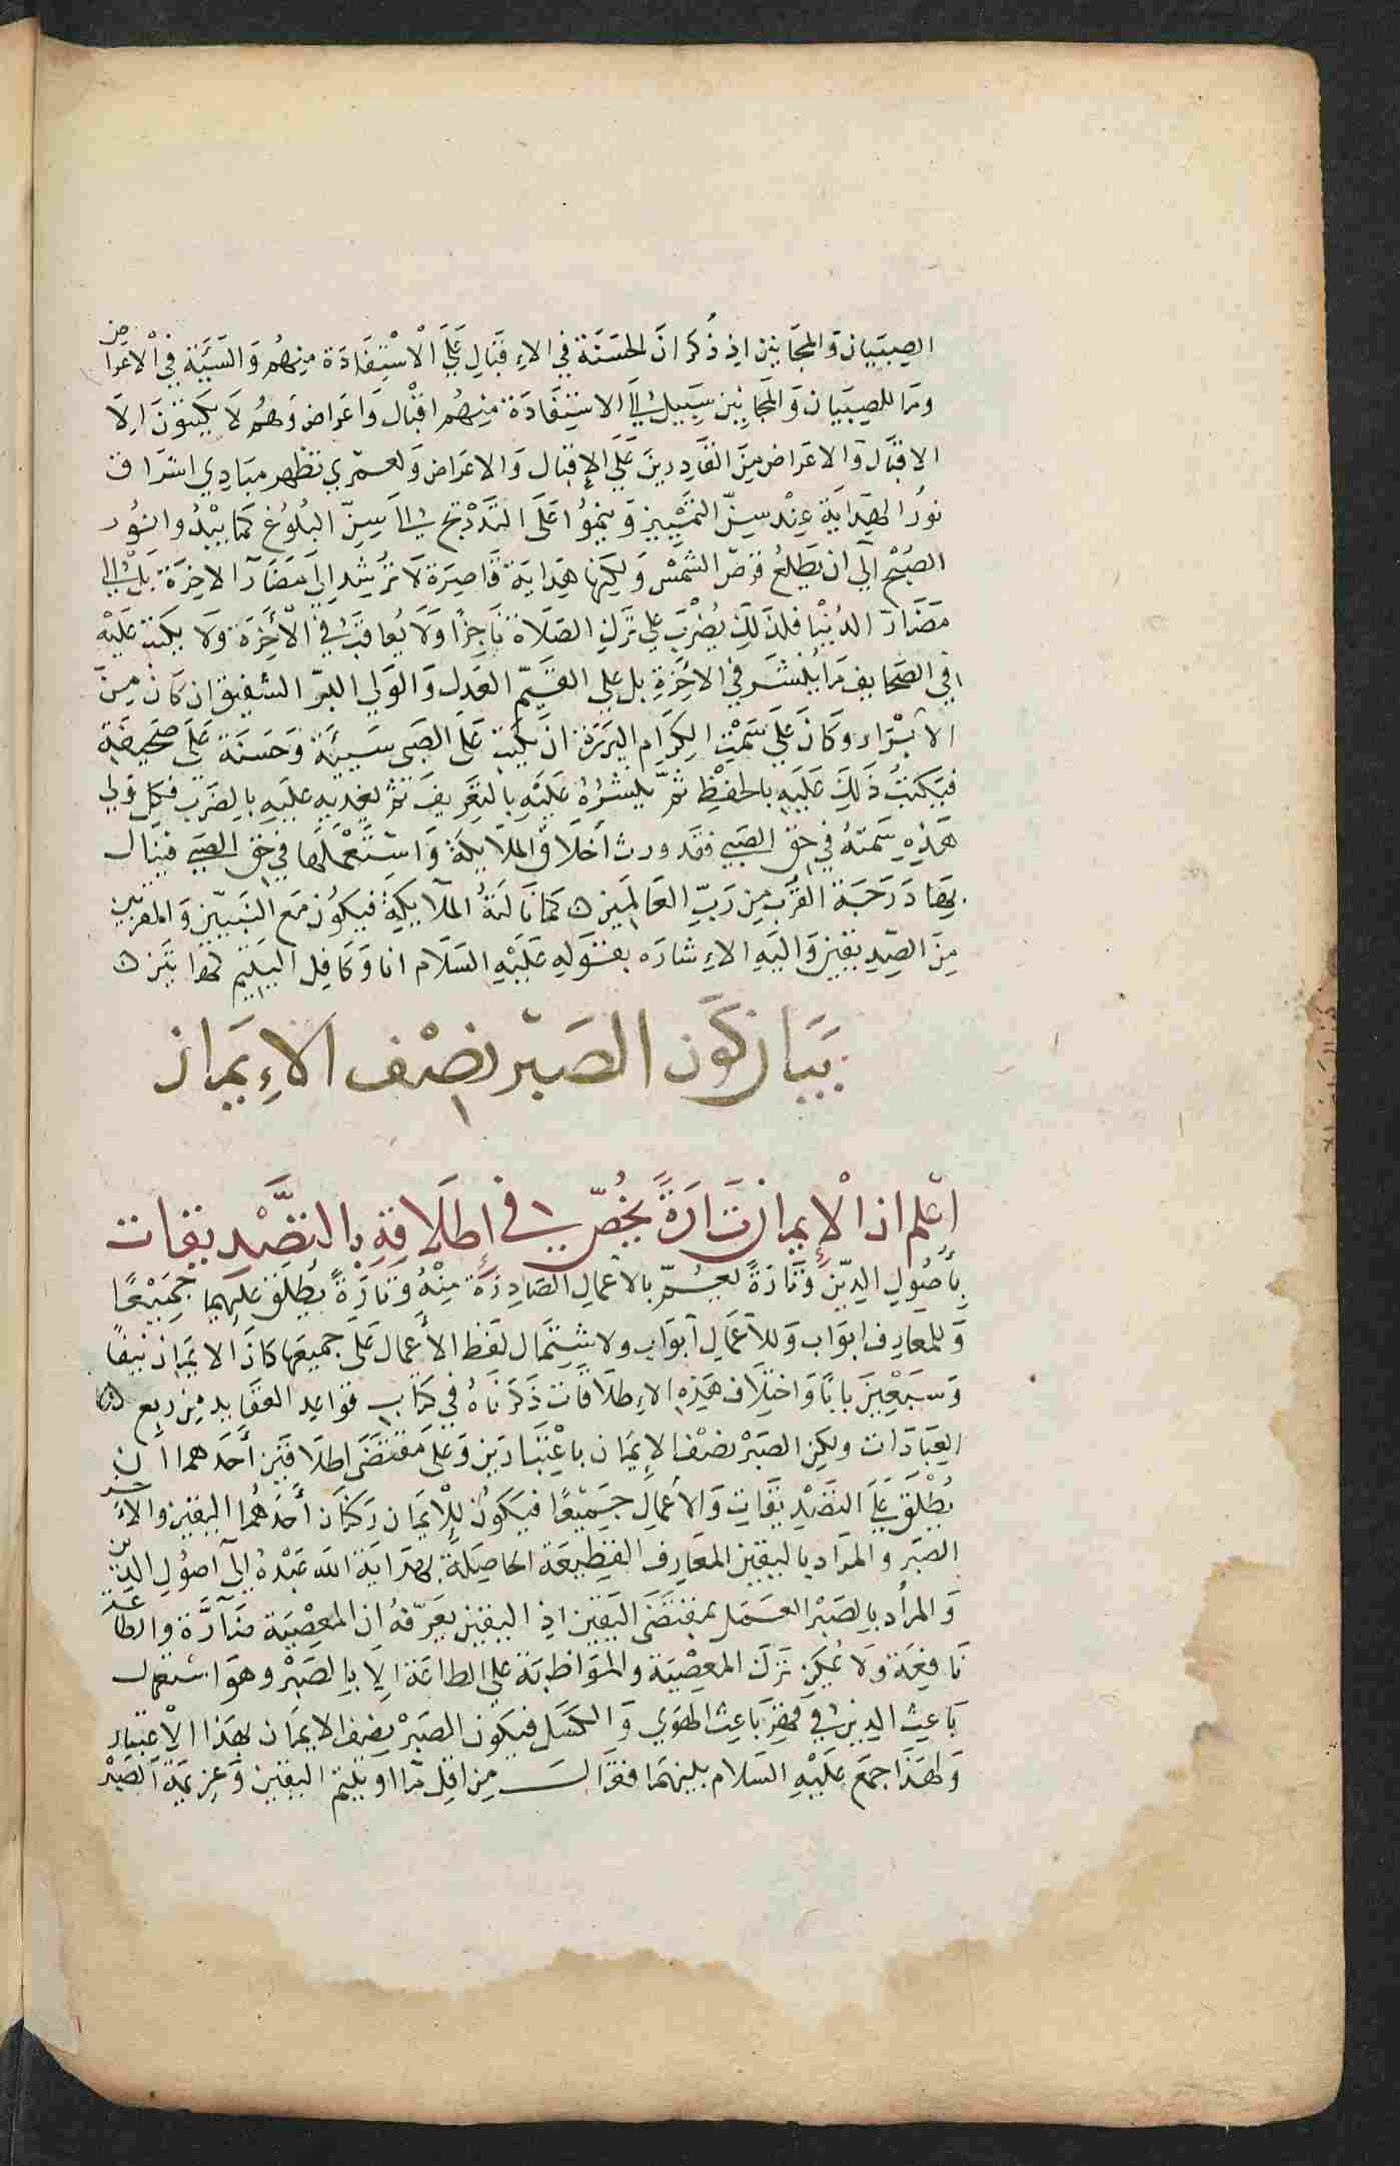 الصبيان والمجانين اذ ذكر ان الحسنة في الاقبال على الاستفادة منهم والسيئة في الاعراض
وما للصبيان والمجانين سبيل الى الاستفادة منهم اقبال واعراض وهم لا يكتبون الا
الاقبال والاعراض من القادرين على الاقبال والاعراض ولعمري تظهر مبادي اشراق
نور الهداية عند سن التمييز وينموا على التدريج الى سن البلوغ كما يبدوا نور
الصبح الى ان يطلع قرص الشمس ولكنها هداية قاصرة لا ترشد الى مضار الاخرة بل الى
مضار الدنيا فلذلك يضرب على ترك الصلاة ناجزا ولا يعاقب في الأخرة ولا يكتب عليه
في الصحايف ما ينشر في الاخرة بل على القيم العدل والولي البر الشفيق ان كان من
الابرار وكان على سمت الكرام البررة ان يكتب على الصبي سيئة وحسنة على صحيفة
فيكتب ذلك عليه بالحفظ ثم ينشره عليه بالتعريف ثم يعذبه عليه بالضرب فكل ولي
هذه سمته في حق الصبي فقد ورث أخلاق الملايكة واستعملها في حق الصبي فينال
بها درجة القرب من رب العالمين كما نالته الملايكة فيكون مع النبيين والمقربين
من الصديقين واليه الاشاره بقوله عليه السلام انا وكافل اليتيم كهاتين
بيان كون الصبر نصف الإيمان
اعلم ان الإيمان تارة يختص في إطلاقه بالتصديقات
بأصول الدين وتارة يختص بالأعمال الصادرة منه وتارة يطلق عليهما جميعا
وللمعارف ابواب وللأعمال أبواب ولاشتمال لفظ الأعمال على جميعها كان الايمان نيفا
وسبعين بابا واختلاف هذه الاطلاقات ذكرناه في كتاب قواعد العقايد من ربع
العبادات ولكن الصبر نصف الإيمان باعتبارين وعلى مقتضى اطلاقين أحدهما ان
يطلق على التصديقات والأعمال جميعا فيكون للإيمان ركنان أحدهما اليقين والأخر
الصبر والمراد باليقين المعارف القطعية الحاصلة بهداية الله عبده إلى اصول الدين
والمراد بالصبر العمل بمقتضى اليقين اذ اليقين يعرفه ان المعصية ضارة والطاعة
نافعة ولا يمكن ترك المعصية والمواظبة على الطاعة الا بالصبر وهو استعمال
باعث الدين في قهر باعث الهوي والكسل فيكون الصبر نصف الايمان بهذا الاعتبار
ولهذا جمع عليه السلام بينهما فقال من اقل ما اوتيتم اليقين وعزيمة الصبر